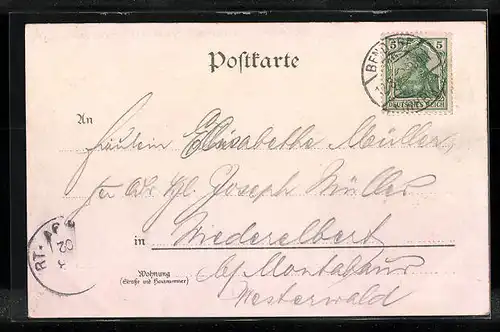 Postkarte
5 5
DEUTSCHES REICH
BEND
An
Fräulein Elisabethe Müller
Joseph Müller
in Niederelbert
Wohnung
(Straße und Hausnummer)
b/ Montabaur
Westerwald